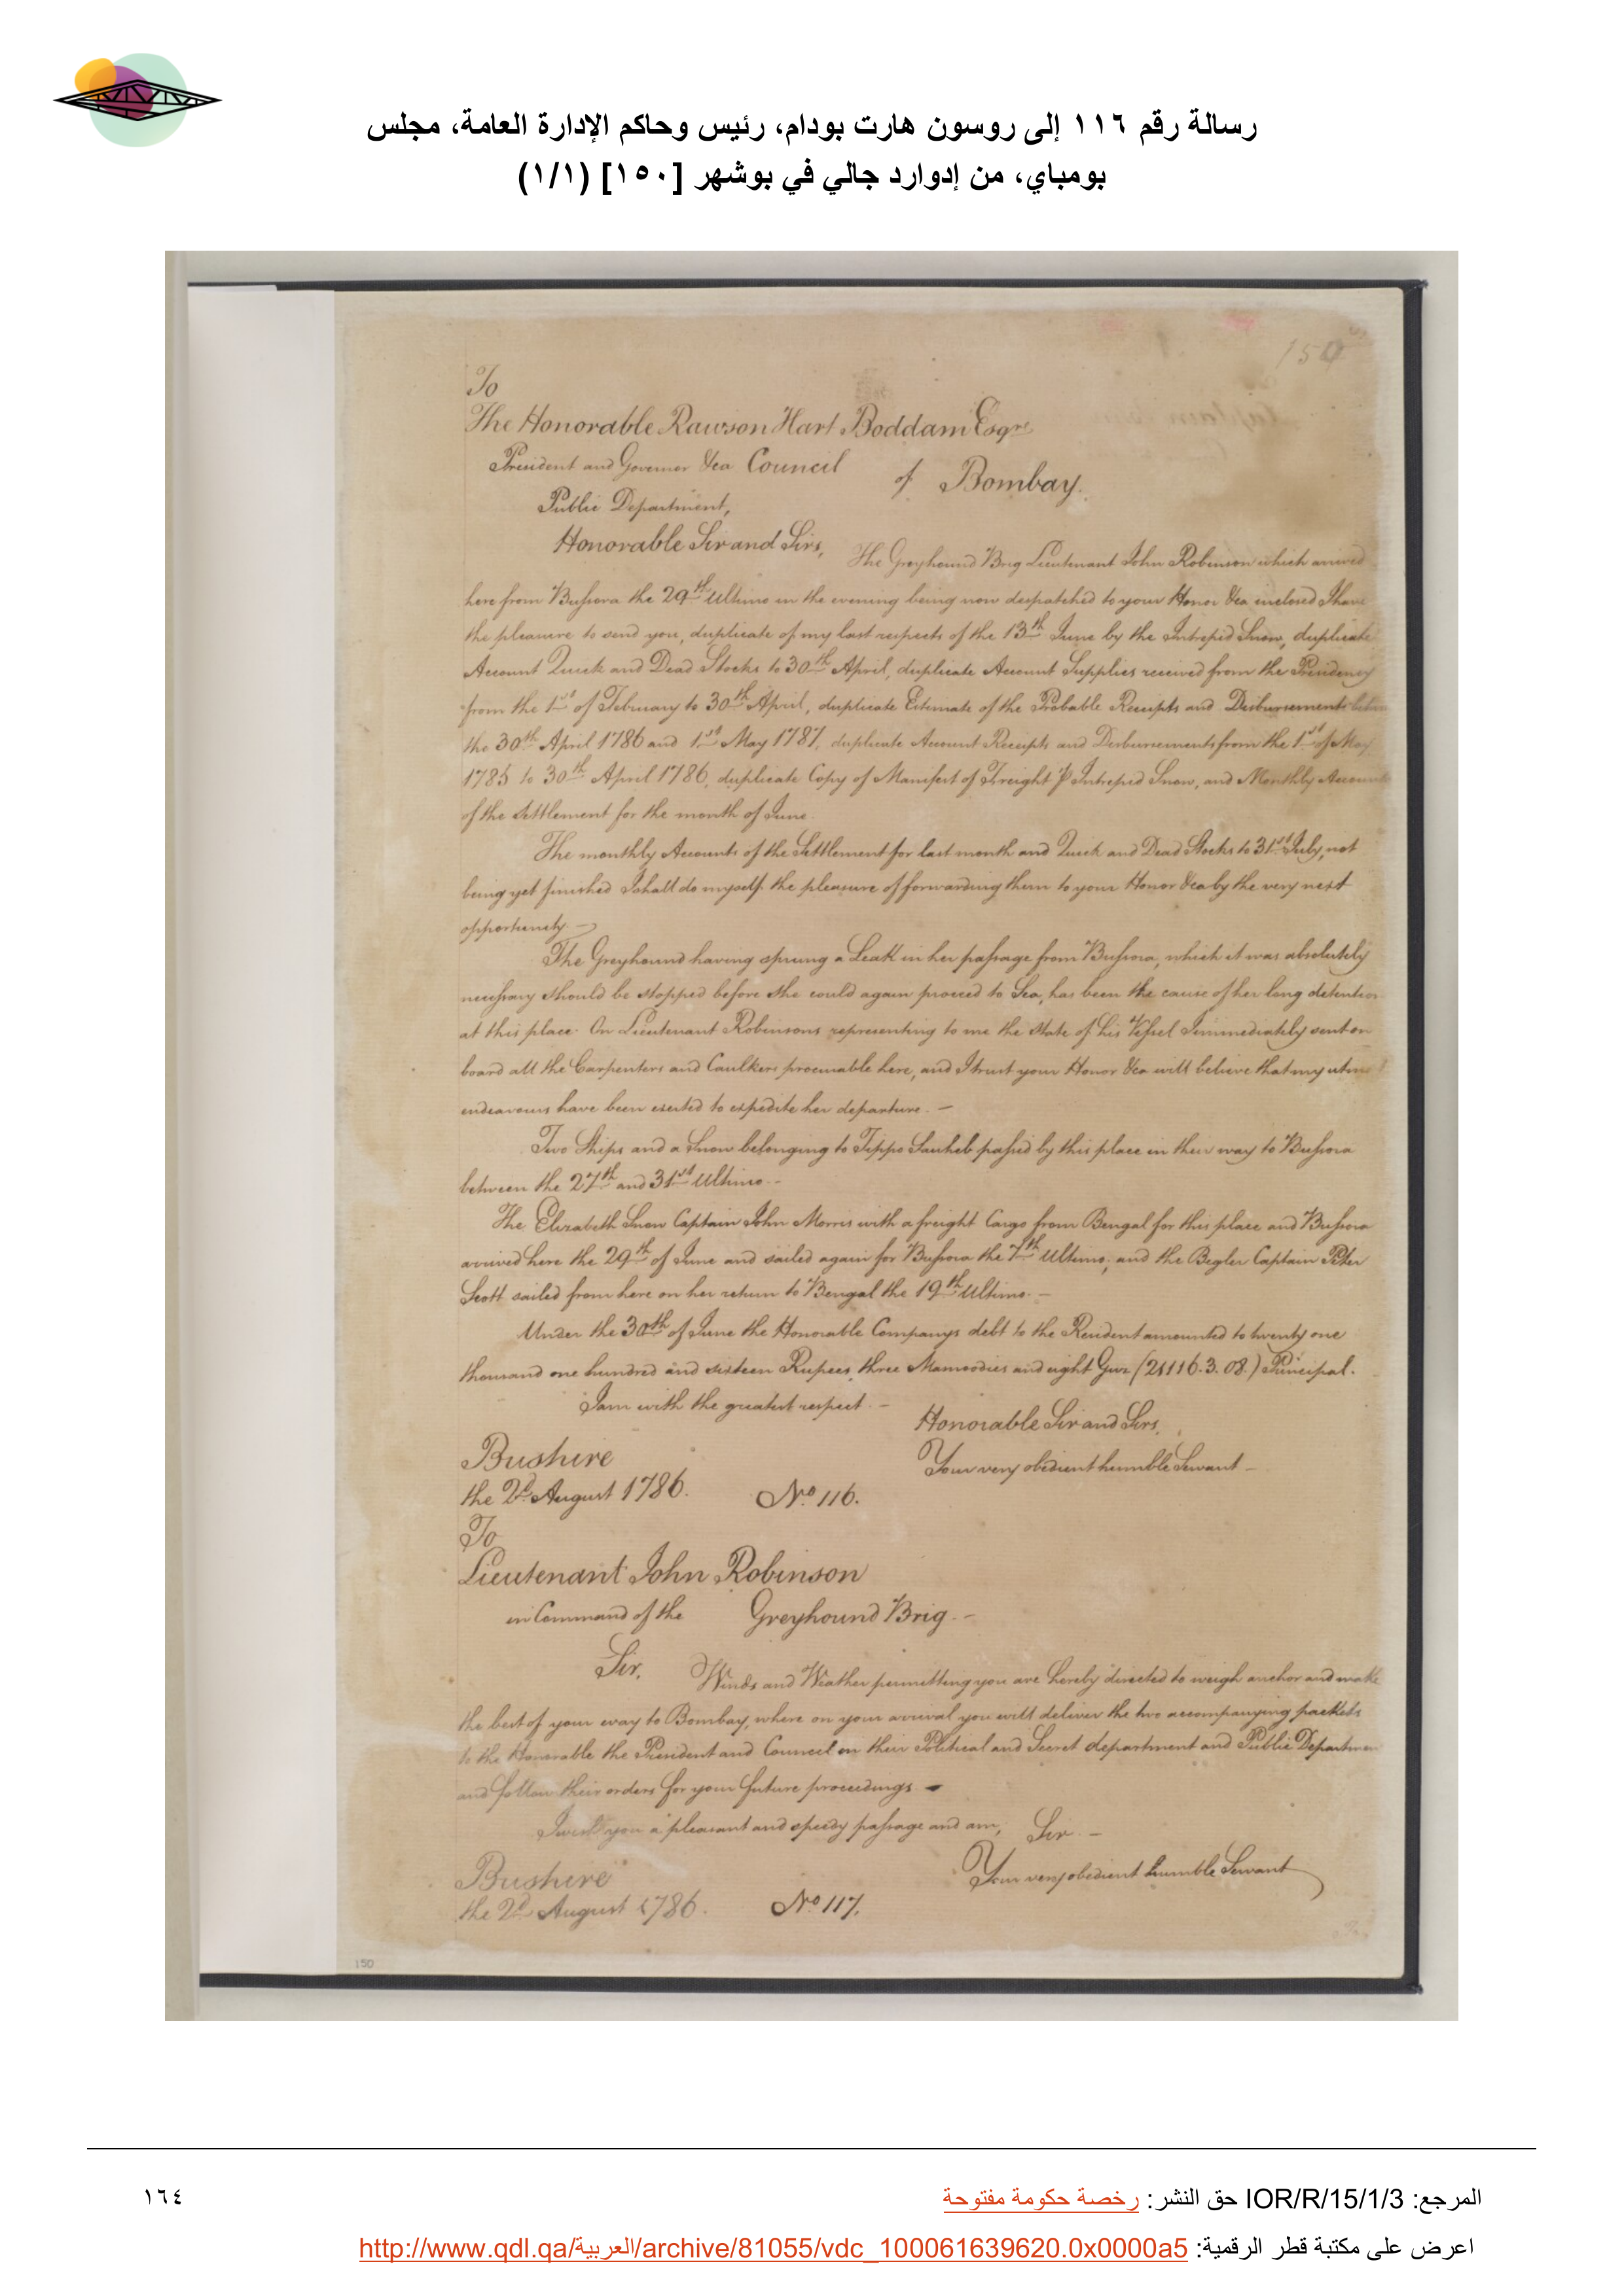 رسالة رقم ١١٦ إلى روسون هارت بودام، رئيس وحاكم الإدارة العامة، مجلس
بومباي، من إدوارد جالي في بوشهر [١٥٠] (١/١)
150
To
The Honorable Rawson Hart Boddam Esqre
President and Governor &ca Council
of Bombay.
Public Department,
Honorable Sir and Sirs,
The Greyhound Brig Lieutenant John Robinson which arrived
here from Bussora the 29th Ultimo in the evening being now despatched to your Honor &ca inclosed I have
the pleasure to send you, duplicate of my last respects of the 13th June by the Intrepid Snow, duplicate
Account Quick and Dead Stocks to 30th April, duplicate Account Supplies received from the Presidency
from the 1st of February to 30th April, duplicate Estimate of the Probable Receipts and Disbursements
the 30th April 1786 and 1st May 1787, duplicate Account Receipts and Disbursements from the 1st of May
1785 to 30th April 1786, duplicate Copy of Manifest of Freight P Intrepid Snow, and Monthly Accounts
of the Settlement for the month of June.
The monthly Accounts of the Settlement for last month and Quick and Dead Stocks to 31st July, not
being yet finished I shall do myself the pleasure of forwarding them to your Honor &ca by the very next
opportunity. —
The Greyhound having sprung a Leak in her passage from Bussora, which it was absolutely
necessary should be stopped before she could again proceed to Sea, has been the cause of her long detention
at this place. On Lieutenant Robinsons representing to me the state of his Vessel I immediately sent on
board all the Carpenters and Caulkers procurable here, and I trust your Honor &ca will believe that my utmost
endeavours have been exerted to expedite her departure. —
Two Ships and a Snow belonging to Tippo Sauheb passed by this place in their way to Bussora
between the 27th and 31st Ultimo. -
The Elizabeth Snow Captain John Morris with a freight Cargo from Bengal for this place and Bussora
arrived here the 29th of June and sailed again for Bussora the 7th Ultimo, and the Begler Captain Peter
Scott sailed from here on her return to Bengal the 19th Ultimo. —
Under the 30th of June the Honorable Companys debt to the Resident amounted to twenty one
thousand one hundred and sixteen Rupees, three Mamoodies and eight Guz (21116.3.08.) Principal.
I am with the greatest respect. —
Honorable Sir and Sirs,
Your very obedient humble Servant —
Bushire
the 2d August 1786.
No 116.
To
Lieutenant John Robinson
in Command of the Greyhound Brig. —
Sir, Winds and Weather permitting you are hereby directed to weigh anchor and make
the best of your way to Bombay, where on your arrival you will deliver the two accompanying packets
to the Honorable the President and Council on their Political and Secret department and Public Department
and follow their orders for your future proceedings. —
I wish you a pleasant and speedy passage and am, Sir. —
Your very obedient humble Servant
Bushire
the 2d August 1786.
No 117.
150
المرجع: IOR/R/15/1/3 حق النشر: رخصة حكومة مفتوحة
١٦٤
اعرض على مكتبة قطر الرقمية: http://www.qdl.qa/العربية/archive/81055/vdc_100061639620.0x0000a5